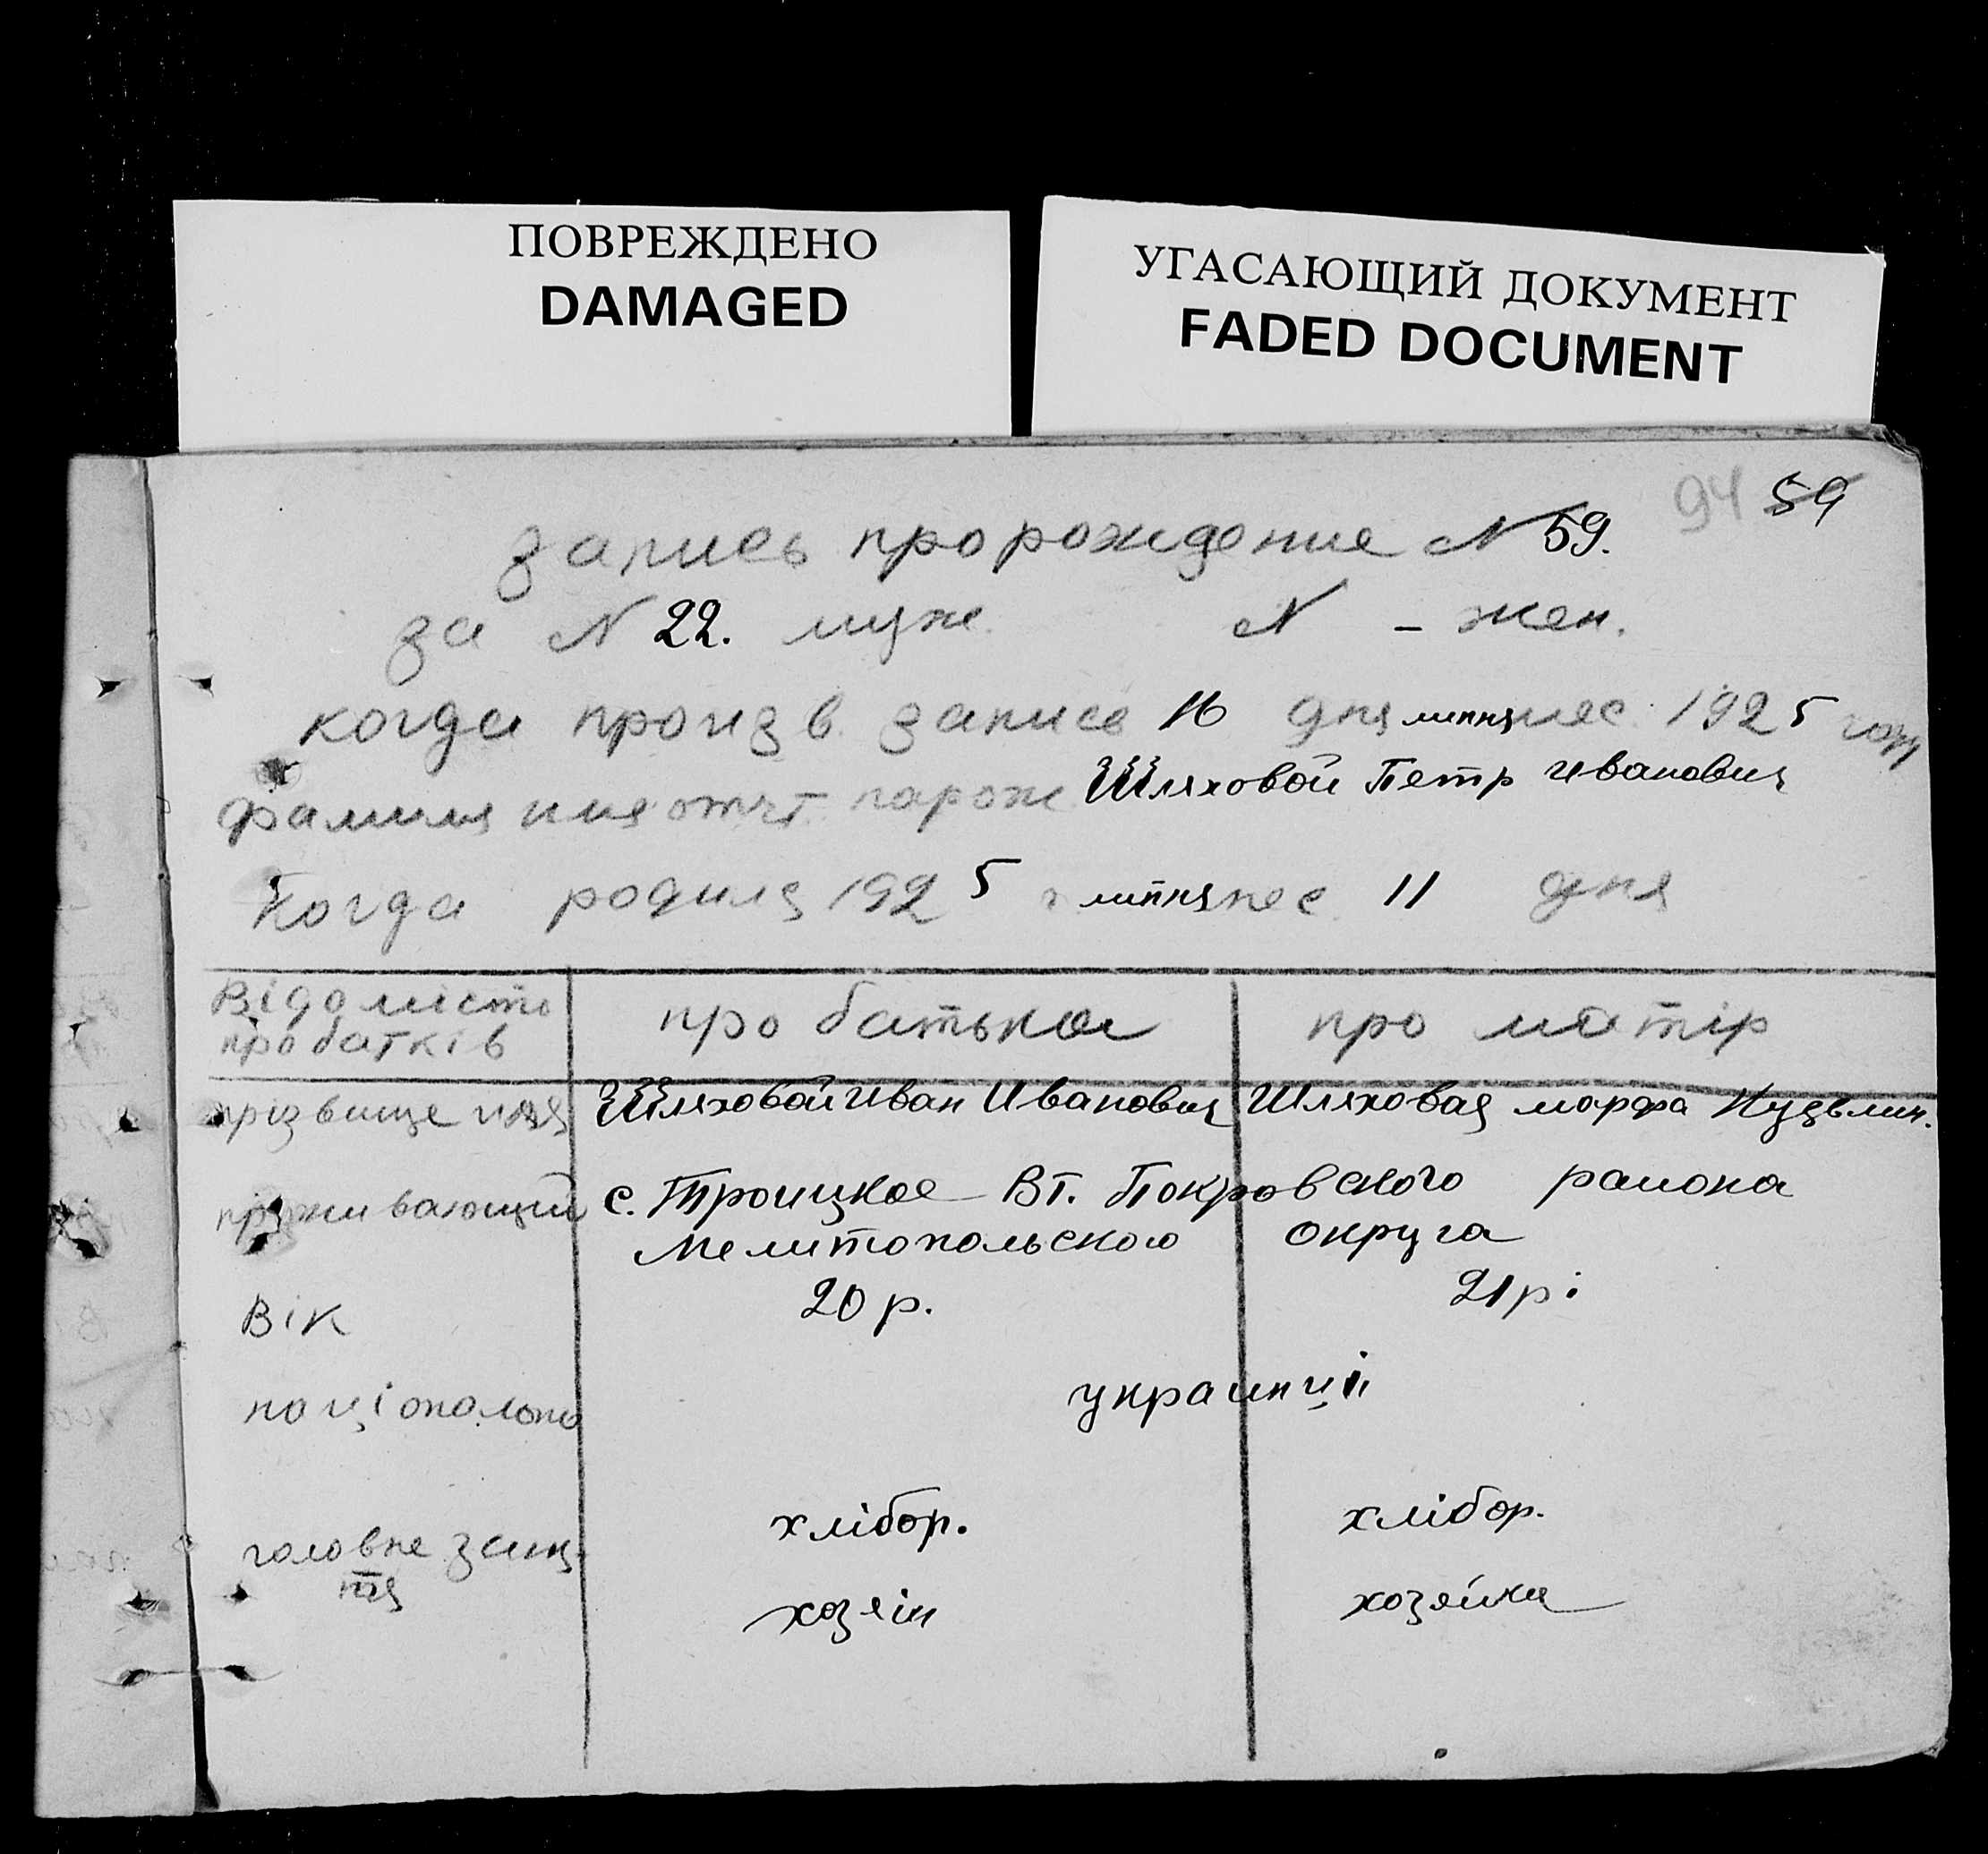 ПОВРЕЖДЕНО
DAMAGED
УГАСАЮЩИЙ ДОКУМЕНТ
FADED DOCUMENT
94 59
запись про рождение N 59.
за N 22. муже. N - жен.
когда произв. запись 16 дня липня мес. 1925 году
фамилия имя отчт. нарож Шляховой Петр Иванович
Когда родилз 1925 г липня мес. 11 дня
Відомисть про батька про матір
про батків
прізвище имя Шляховой Иван Иванович Шляховая Марфа Кузьмин.
проживающий с. Троицкое Вт. Покровского района
Мелитопольского округа
Вік 20 р. 21 р.
націонольно украинці
головне занят- хлібор. хлібор.
тя хозяін хозяйка